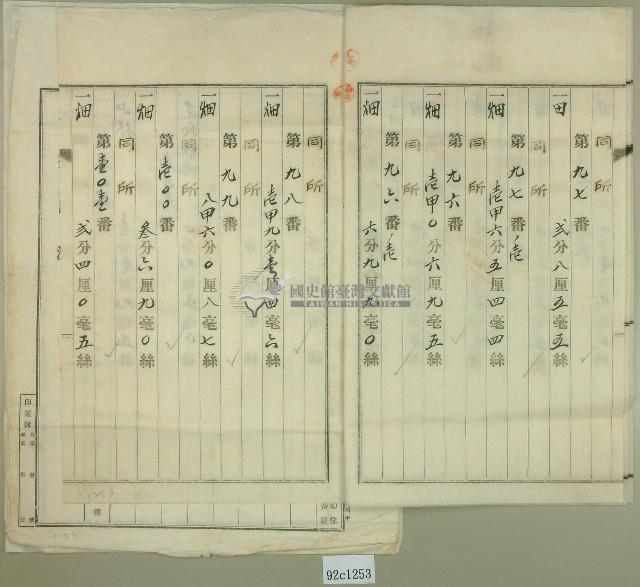 同所
第九七番
一田 弐分八厘五毫五絲
同所
第九七番ノ壱
一畑 壱甲六分五厘四毫四絲
同所
第九六番
一畑 壱甲〇分六厘九毫五絲
同所
第九六番ノ壱
一畑 六分九厘五毫〇絲
同所
第九八番
一畑 壱甲九分壱厘四毫六絲
同所
第九九番
一畑 八甲六分〇厘八毫七絲
同所
第壱〇〇番
一畑 叁分六厘九毫〇絲
同所
第壱〇壱番
一畑 弐分四厘〇毫五絲
國史館臺灣文獻館
TAIWAN HISTORICA
92c1253